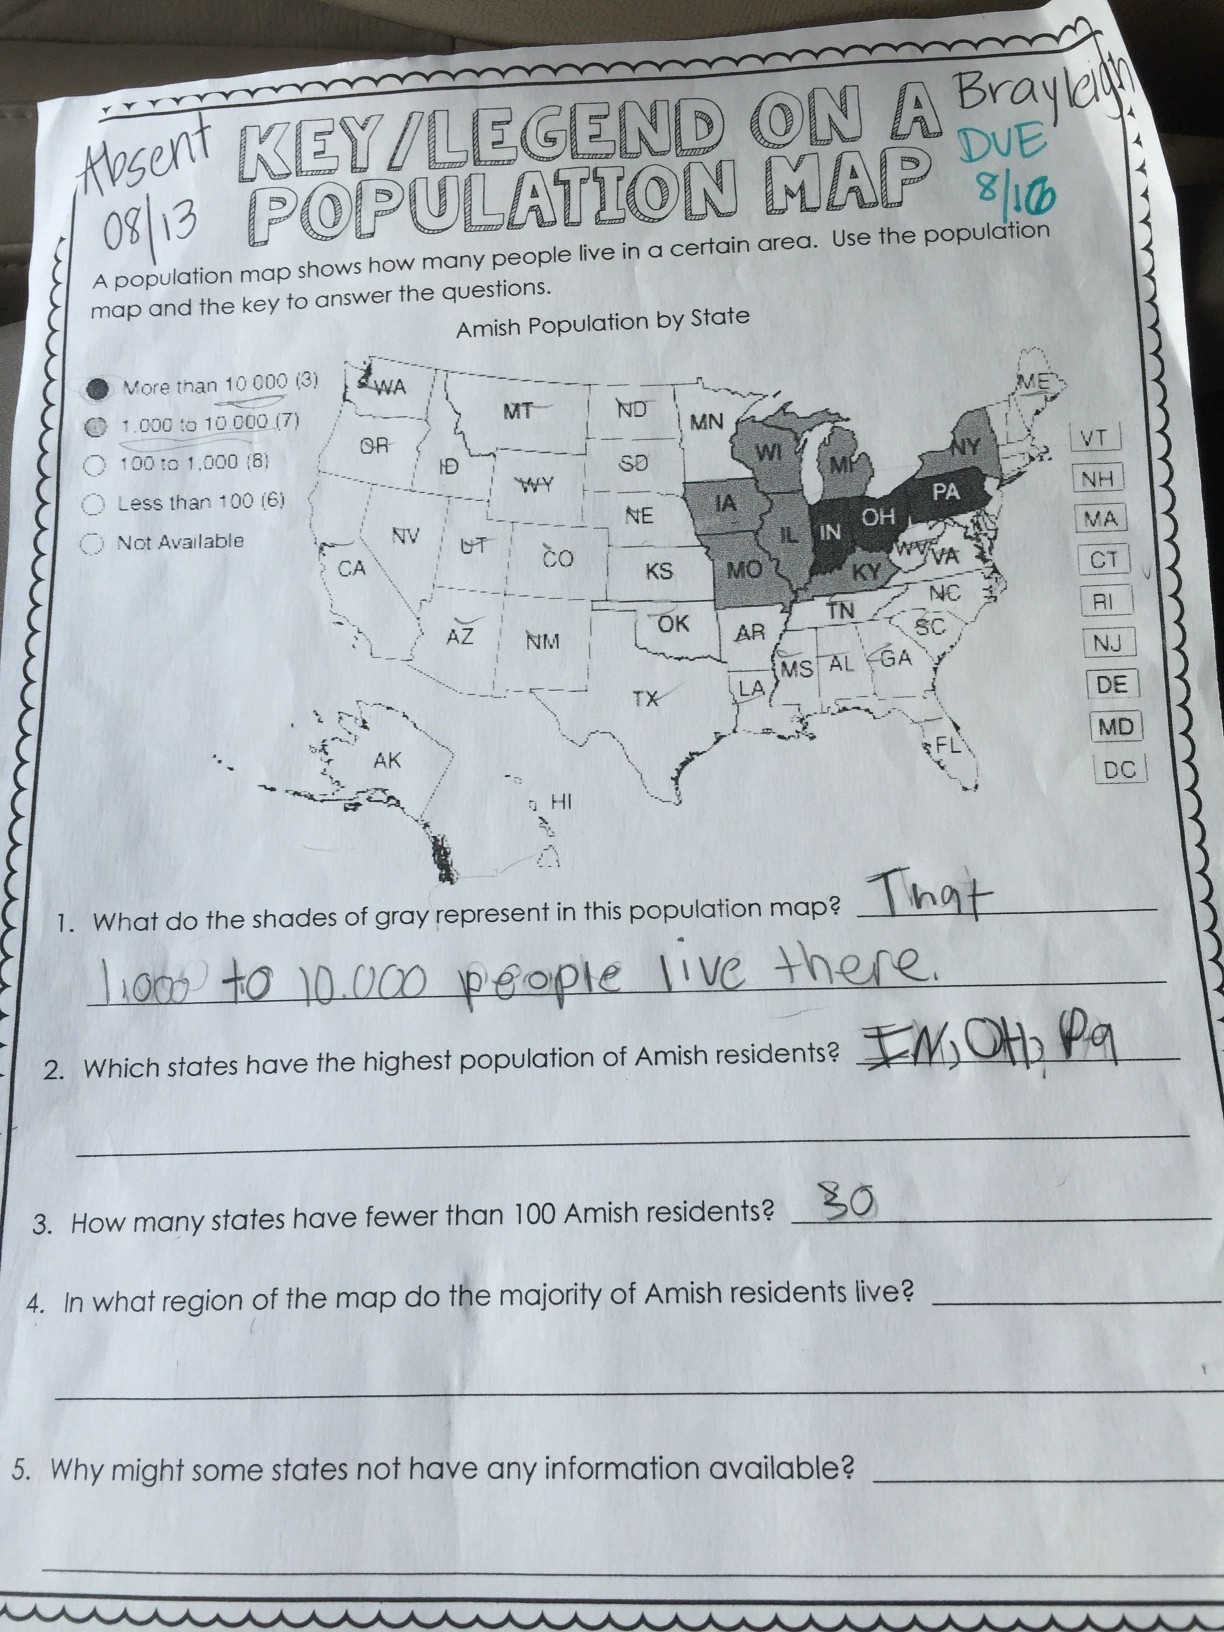 Absent
08/13
Brayleigh
DUE
8/16
KEY/LEGEND ON A
POPULATION MAP
A population map shows how many people live in a certain area. Use the population
map and the key to answer the questions.
Amish Population by State
More than 10 000 (3)
1.000 to 10 000 (7)
100 to 1,000 (8)
Less than 100 (6)
Not Available
WA
MT
ND
MN
ME
OR
ID
WY
SD
WI
MI
NY
VT
NH
NV
UT
CO
NE
IA
IL
IN
OH
PA
MA
CA
KS
MO
KY
WV
VA
CT
AZ
NM
OK
AR
TN
NC
SC
RI
TX
LA
MS
AL
GA
NJ
DE
AK
HI
FL
MD
DC
1. What do the shades of gray represent in this population map? That
1.000 to 10.000 people live there.
2. Which states have the highest population of Amish residents? IN, OH, Pa
3. How many states have fewer than 100 Amish residents? 30
4. In what region of the map do the majority of Amish residents live?
5. Why might some states not have any information available?